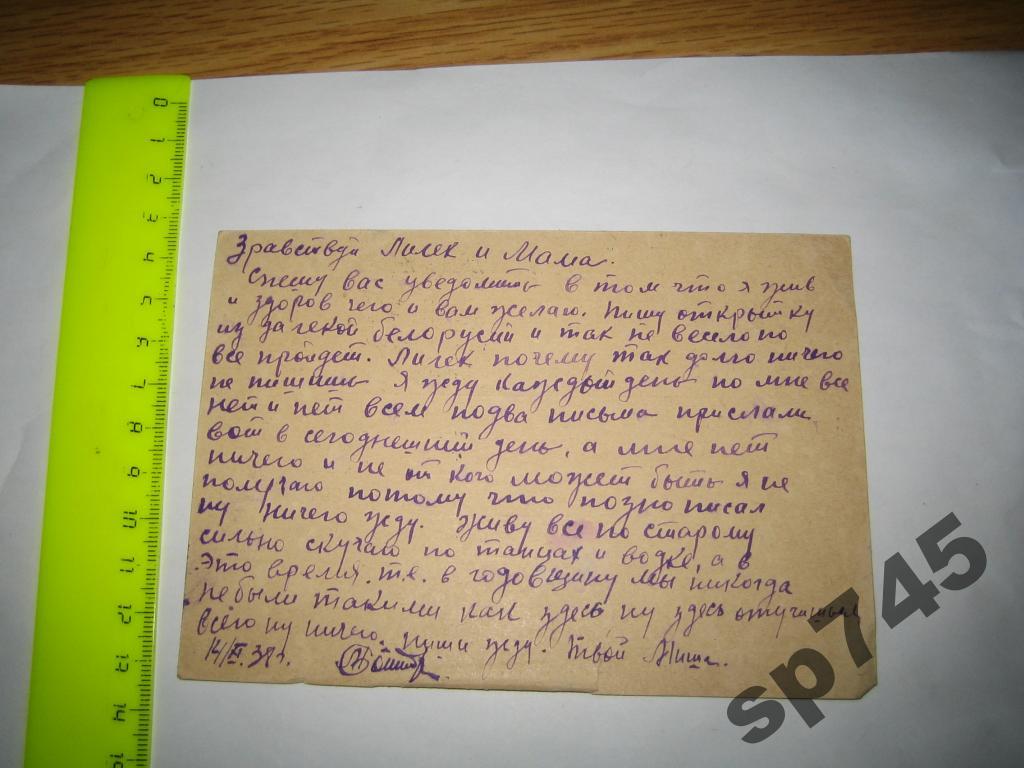 Здравствуй Лилек и Мама.
Спешу вас уведомить в том что я жив
и здоров чего и вам желаю. Пишу открытку
из далекой белорусии и так не весело но
все пройдет. Лилек почему так долго ничего
не пишишь я жду каждый день но мне все
нет и нет всем по два письма прислали
вот в сегоднешний день, а мне нет
ничего и не от кого может быть я не
получаю потому что позно писал
ну ничего жду. Живу все по старому
сильно скучаю по танцах и водке, а в
это время т.е. в годовщину мы никогда
не были такими как здесь ну здесь отучишься
всего ну ничего. пиши жду. Твой Миша.
14/XI 38г.
0 1 2 3 4 5 6 7 8 9 10 11 12 13 14 15
sp745